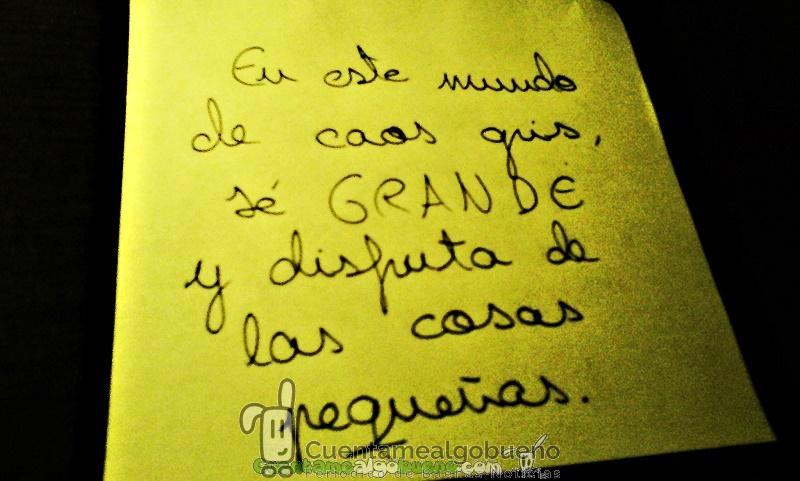 En este mundo
de caos gris,
sé GRANDE
y disfruta de
las cosas
pequeñas.
Cuentamealgobueno
Cuentamealgobueno.com
Periódico de Buenas Noticias